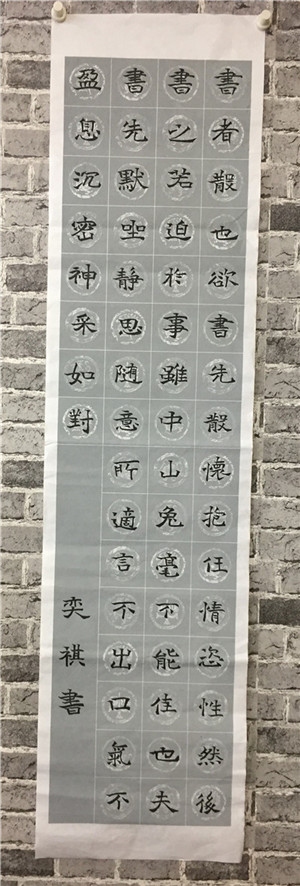 書者散也欲書先散懷抱任情恣性然後
書之若迫於事雖中山兔毫不能佳也夫
書先默坐静思随意所適言不出口氣不
盈息沉密神采如對
奕祺書